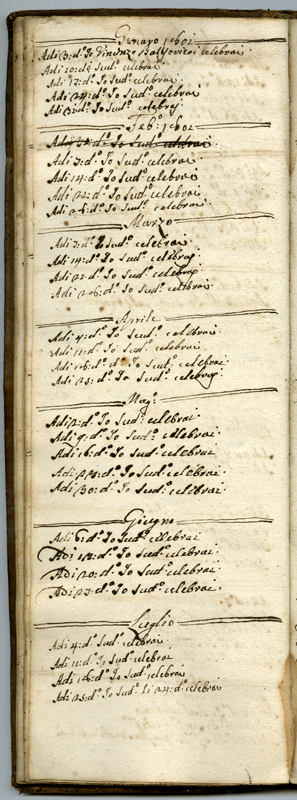 Genaro 1802
Adi 3: d.º Io Vincenzo Ballovieri celebrai
Adi 10: d.º Sud.º celebrai
Adi 17: d.º Io Sud.º celebrai
Adi 24: d.º Io Sud.º celebrai
Adi 31: d.º Io Sud.º celebraj
Feb.º 1802
Adi d.º Io Sud.º celebrai
Adi 7: d.º Io Sud.º celebrai
Adi 14: d.º Io Sud.º celebrai
Adi 22: d.º Io Sud.º celebrai
Adi 28: d.º Io Sud.º celebrai
Marzo
Adi 7: d.º Io Sud.º celebrai
Adi 14: d.º Io Sud.º celebraj
Adi 22: d.º Io Sud.º celebraj
Adi 28: d.º Io Sud.º celebrai
Aprile
Adi 4: d.º Io Sud.º celebrai
Adi 11: d.º Io Sud.º celebrai
Adi 18: d.º Io Sud.º celebrai
Adi 25: d.º Io Sud.º celebraj
Mag.º
Adi 2: d.º Io Sud.º celebrai
Adi 9: d.º Io Sud.º celebrai
Adi 16: d.º Io Sud.º celebrai
Adi d.º Io Sud.º celebrai
Adi 30: d.º Io Sud.º celebrai
Giugno
Adi 6: d.º Io Sud.º celebrai
Adi 13: d.º Io Sud.º celebrai
Adi 20: d.º Io Sud.º celebrai
Adi 27: d.º Io Sud.º celebrai
Luglio
Adi 4: d.º Sud.º celebrai
Adi 11: d.º Io Sud.º celebrai
Adi 18: d.º Io Sud.º celebrai
Adi 25: d.º Io Sud.º li 24: d.º celebrai